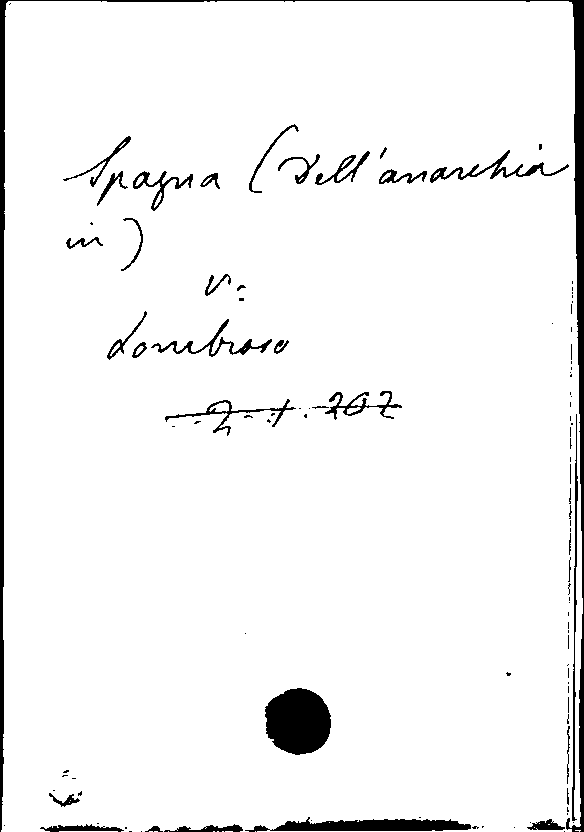 Spagna (Dell'anarchia
in)
V:
Lombroso
2. 1. 202